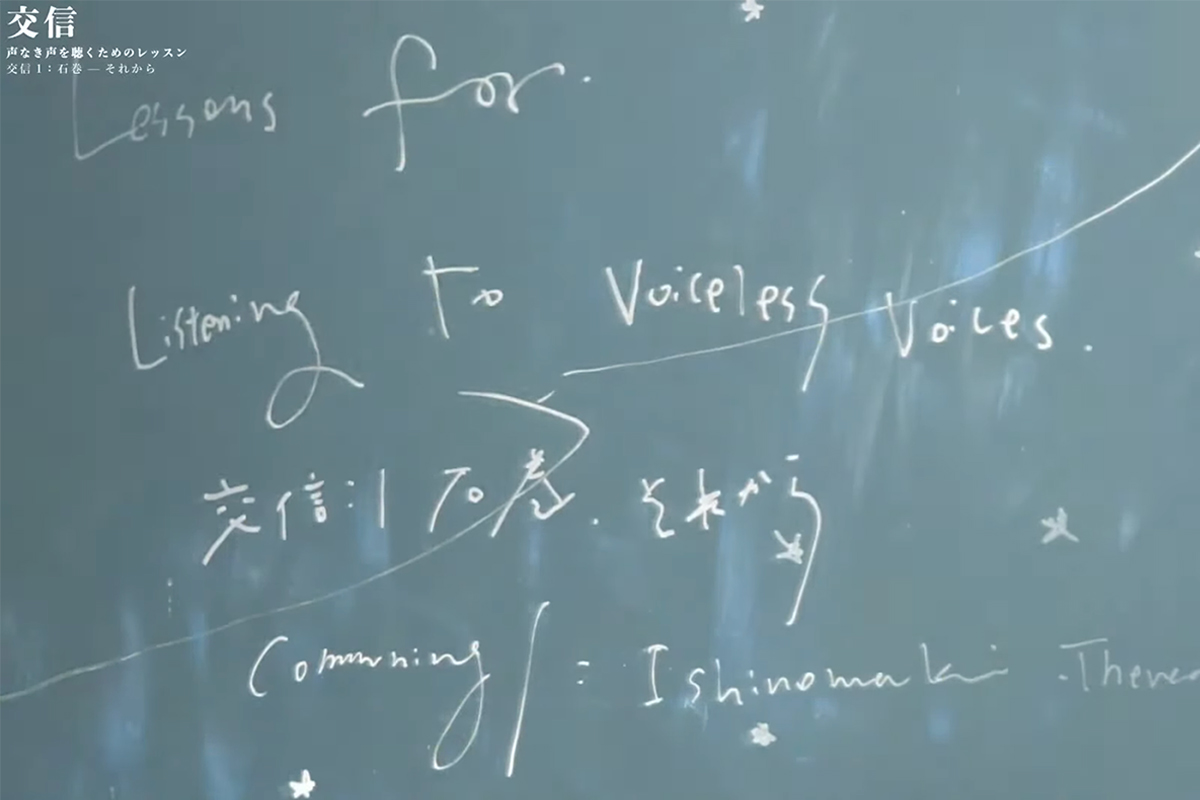 交信
声なき声を聴くためのレッスン
交信 1：石巻 — それから
Lessons for.
Listening to Voiceless Voices.
交信:1 石巻. それから
Communing / : Ishinomaki